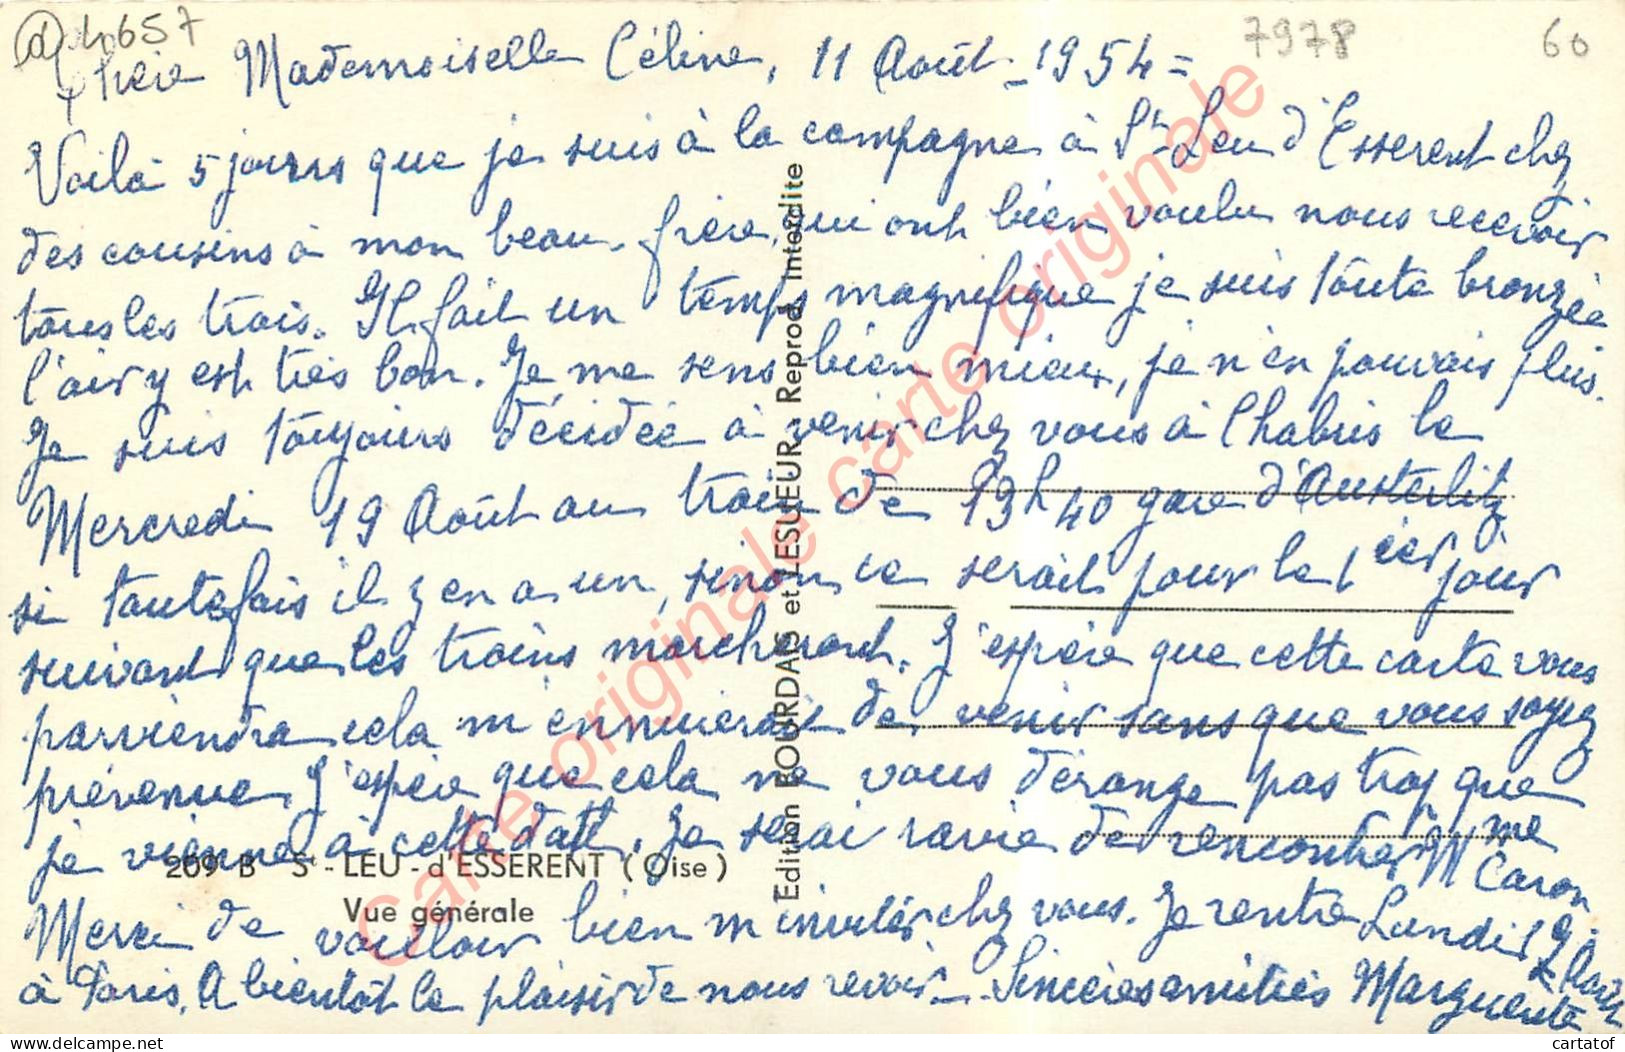 ⓓ 4657
7978
60
Chère Mademoiselle Céline, 11 Août - 1954 =
Voilà 5 jours que je suis à la campagne à St Leu d'Esserent chez
des cousins à mon beau-frère, qui ont bien voulu nous recevoir
tous les trois. Il fait un temps magnifique je suis toute bronzée
l'air y est très bon. Je me sens bien mieux, je n'en pouvais plus.
Je suis toujours décidée à venir chez vous à Chabris le
Mercredi 19 Août au train de 13h40 gare d'Austerlitz
si toutefois il y en a un, sinon ce serait pour le 1er jour
suivant que les trains marcheront. J'espère que cette carte vous
parviendra cela m'ennuierait de venir sans que vous soyez
prévenue. J'espère que cela ne vous dérange pas trop que
je vienne à cette date. Je serai ravie de rencontrer Mme
Caron
Merci de vouloir bien m'inviter chez vous. Je rentre Lundi
à Paris. A bientôt le plaisir de nous revoir - Sincères amitiés Marguerite
209 B St - LEU - d'ESSERENT (Oise)
Vue générale
Edition BOURDAIS et LESUEUR Reprod. Interdite
Carte originale carte originale carte originale
delcampe.net
cartatof